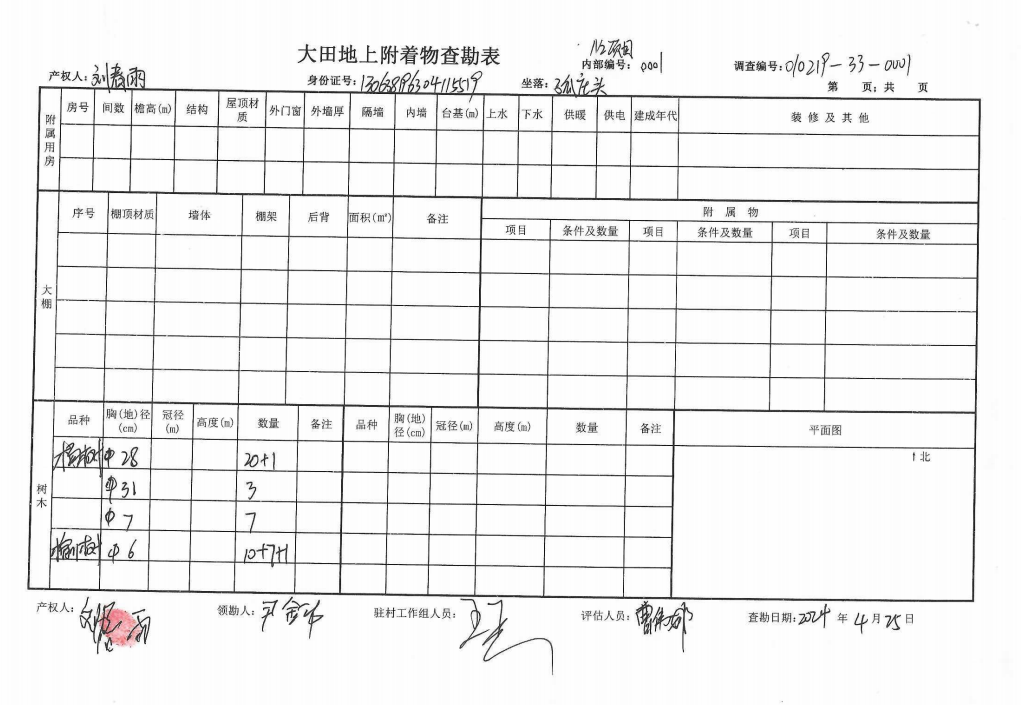 大田地上附着物查勘表
N2项目
产权人：刘春雨 身份证号：130638196304115519 坐落：孤庄头 内部编号：0001 调查编号：010219-33-0001
第 页；共 页
附属用房
房号 间数 檐高(m) 结构 屋顶材质 外门窗 外墙厚 隔墙 内墙 台基(m) 上水 下水 供暖 供电 建成年代 装修及其他
大棚
序号 棚顶材质 墙体 棚架 后背 面积(㎡) 备注 附属物
项目 条件及数量 项目 条件及数量 项目 条件及数量
树木
品种 胸(地)径(cm) 冠径(m) 高度(m) 数量 备注 品种 胸(地)径(cm) 冠径(m) 高度(m) 数量 备注 平面图
Φ28 20+1 ↑北
Φ31 3
Φ7 7
榆树 Φ6 10+7+1
产权人：刘春雨 领勘人： 驻村工作组人员： 评估人员： 查勘日期：2024 年 4 月 25 日